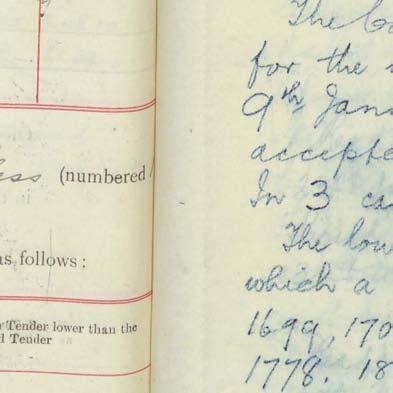 ess (numbered
as follows:
Tender lower than the
d Tender
The
for the
9th Jan
accepte
In 3 ca
The low
which a
1699, 170
1778. 18